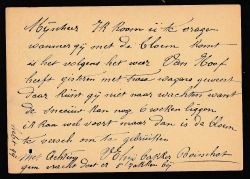 Mijnheer IK Koom u te vragen
wanneer gij met de Bloem komt
is het volgens het weer Van Hoof
heeft gisteren met twee wagens geweest
daar kunt gij niet naar wachten want
de sneeuw kan nog 6 weken liggen
ik kan wel voort maar dan is de bloem
te versch om te gebruiken
Met Achting Bakker Boisschot